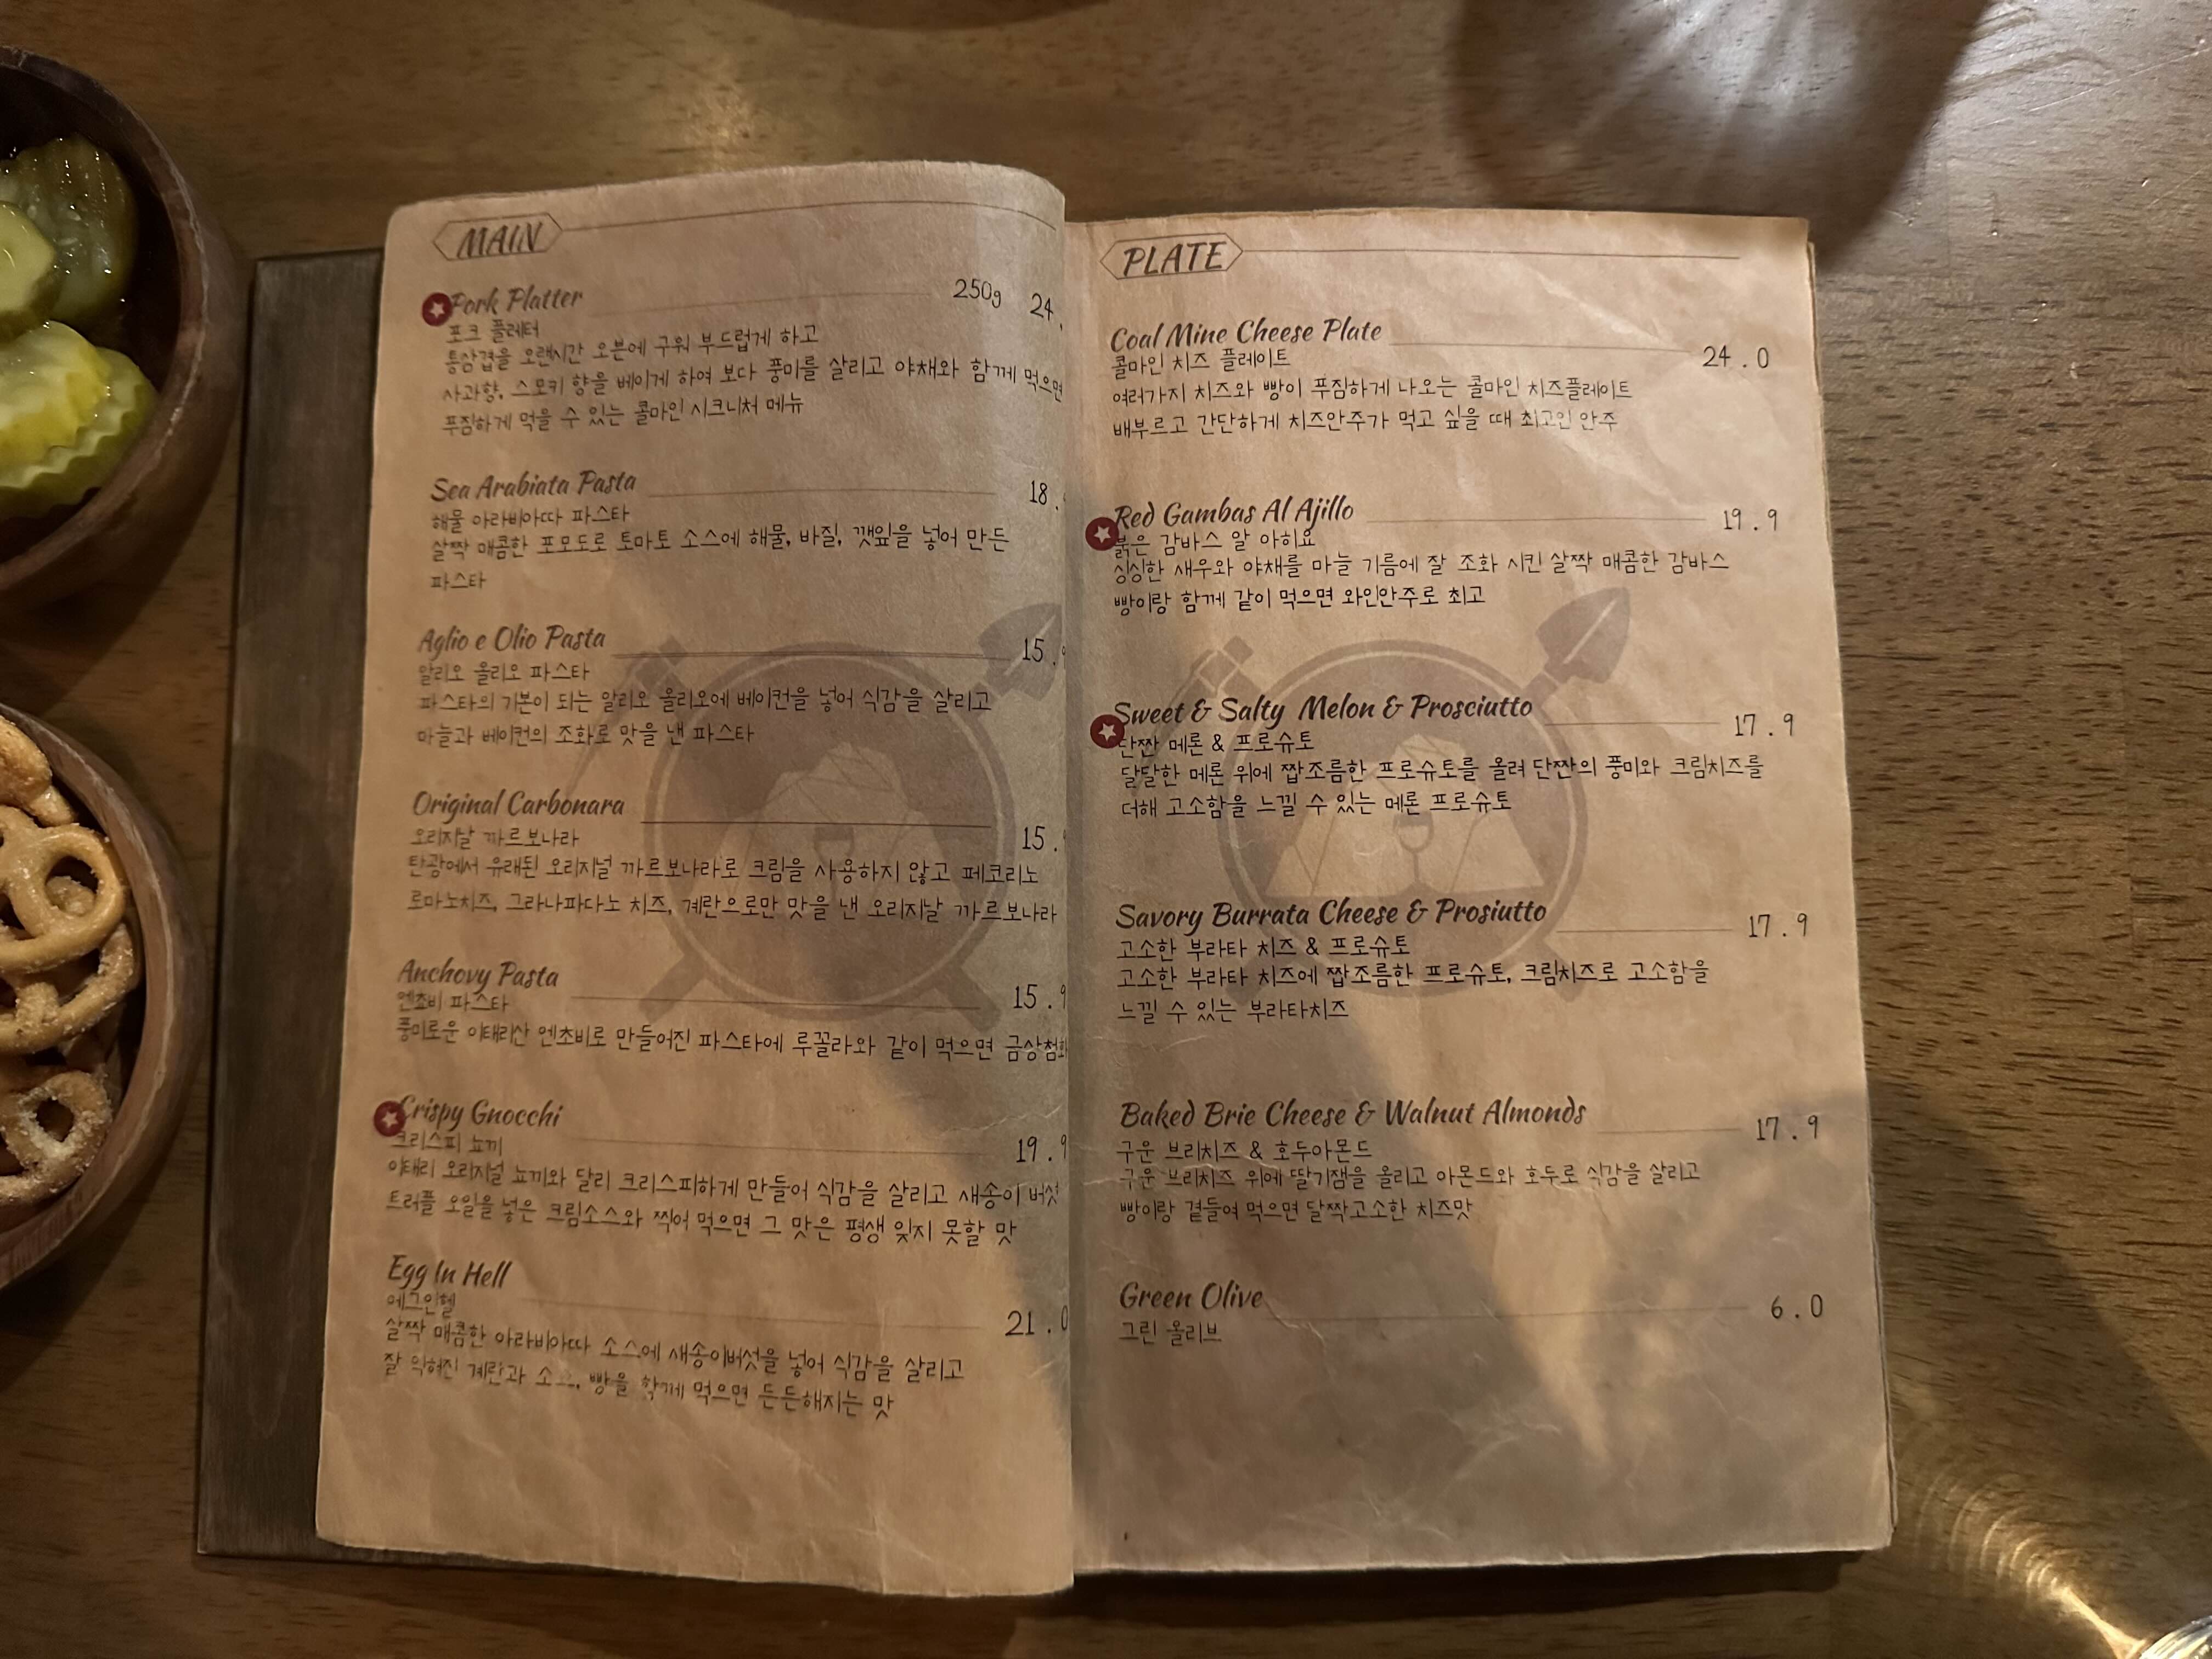 MAIN
Pork Platter 250g 24.
포크 플레터
통삼겹을 오랜시간 오븐에 구워 부드럽게 하고
사과향, 스모키 향을 베이게 하여 보다 풍미를 살리고 야채와 함께 먹으면
푸짐하게 먹을 수 있는 콜마인 시크니처 메뉴
Sea Arabiata Pasta 18.
해물 아라비아따 파스타
살짝 매콤한 포모도로 토마토 소스에 해물, 바질, 깻잎을 넣어 만든
파스타
Aglio e Olio Pasta 15.9
알리오 올리오 파스타
파스타의 기본이 되는 알리오 올리오에 베이컨을 넣어 식감을 살리고
마늘과 베이컨의 조화로 맛을 낸 파스타
Original Carbonara 15.9
오리지날 까르보나라
탄광에서 유래된 오리지널 까르보나라로 크림을 사용하지 않고 페코리노
로마노치즈, 그라나파다노 치즈, 계란으로만 맛을 낸 오리지날 까르보나라
Anchovy Pasta 15.9
엔쵸비 파스타
풍미로운 이태리산 엔쵸비로 만들어진 파스타에 루꼴라와 같이 먹으면 금상첨화
Crispy Gnocchi 19.9
크리스피 뇨끼
이태리 오리지널 뇨끼와 달리 크리스피하게 만들어 식감을 살리고 새송이 버섯
트러플 오일을 넣은 크림소스와 찍어 먹으면 그 맛은 평생 잊지 못할 맛
Egg In Hell 21.0
에그인헬
살짝 매콤한 아라비아따 소스에 새송이버섯을 넣어 식감을 살리고
잘 익혀진 계란과 빵을 함께 먹으면 든든해지는 맛
PLATE
Coal Mine Cheese Plate 24.0
콜마인 치즈 플레이트
여러가지 치즈와 빵이 푸짐하게 나오는 콜마인 치즈플레이트
배부르고 간단하게 치즈안주가 먹고 싶을 때 최고인 안주
Red Gambas Al Ajillo 19.9
붉은 감바스 알 아히요
싱싱한 새우와 야채를 마늘 기름에 잘 조화 시킨 살짝 매콤한 감바스
빵이랑 함께 같이 먹으면 와인안주로 최고
Sweet & Salty Melon & Prosciutto 17.9
단짠 메론 & 프로슈토
달달한 메론 위에 짭조름한 프로슈토를 올려 단짠의 풍미와 크림치즈를
더해 고소함을 느낄 수 있는 메론 프로슈토
Savory Burrata Cheese & Prosiutto 17.9
고소한 부라타 치즈 & 프로슈토
고소한 부라타 치즈에 짭조름한 프로슈토, 크림치즈로 고소함을
느낄 수 있는 부라타치즈
Baked Brie Cheese & Walnut Almonds 17.9
구운 브리치즈 & 호두아몬드
구운 브리치즈 위에 딸기잼을 올리고 아몬드와 호두로 식감을 살리고
빵이랑 곁들여 먹으면 달짝고소한 치즈맛
Green Olive 6.0
그린 올리브